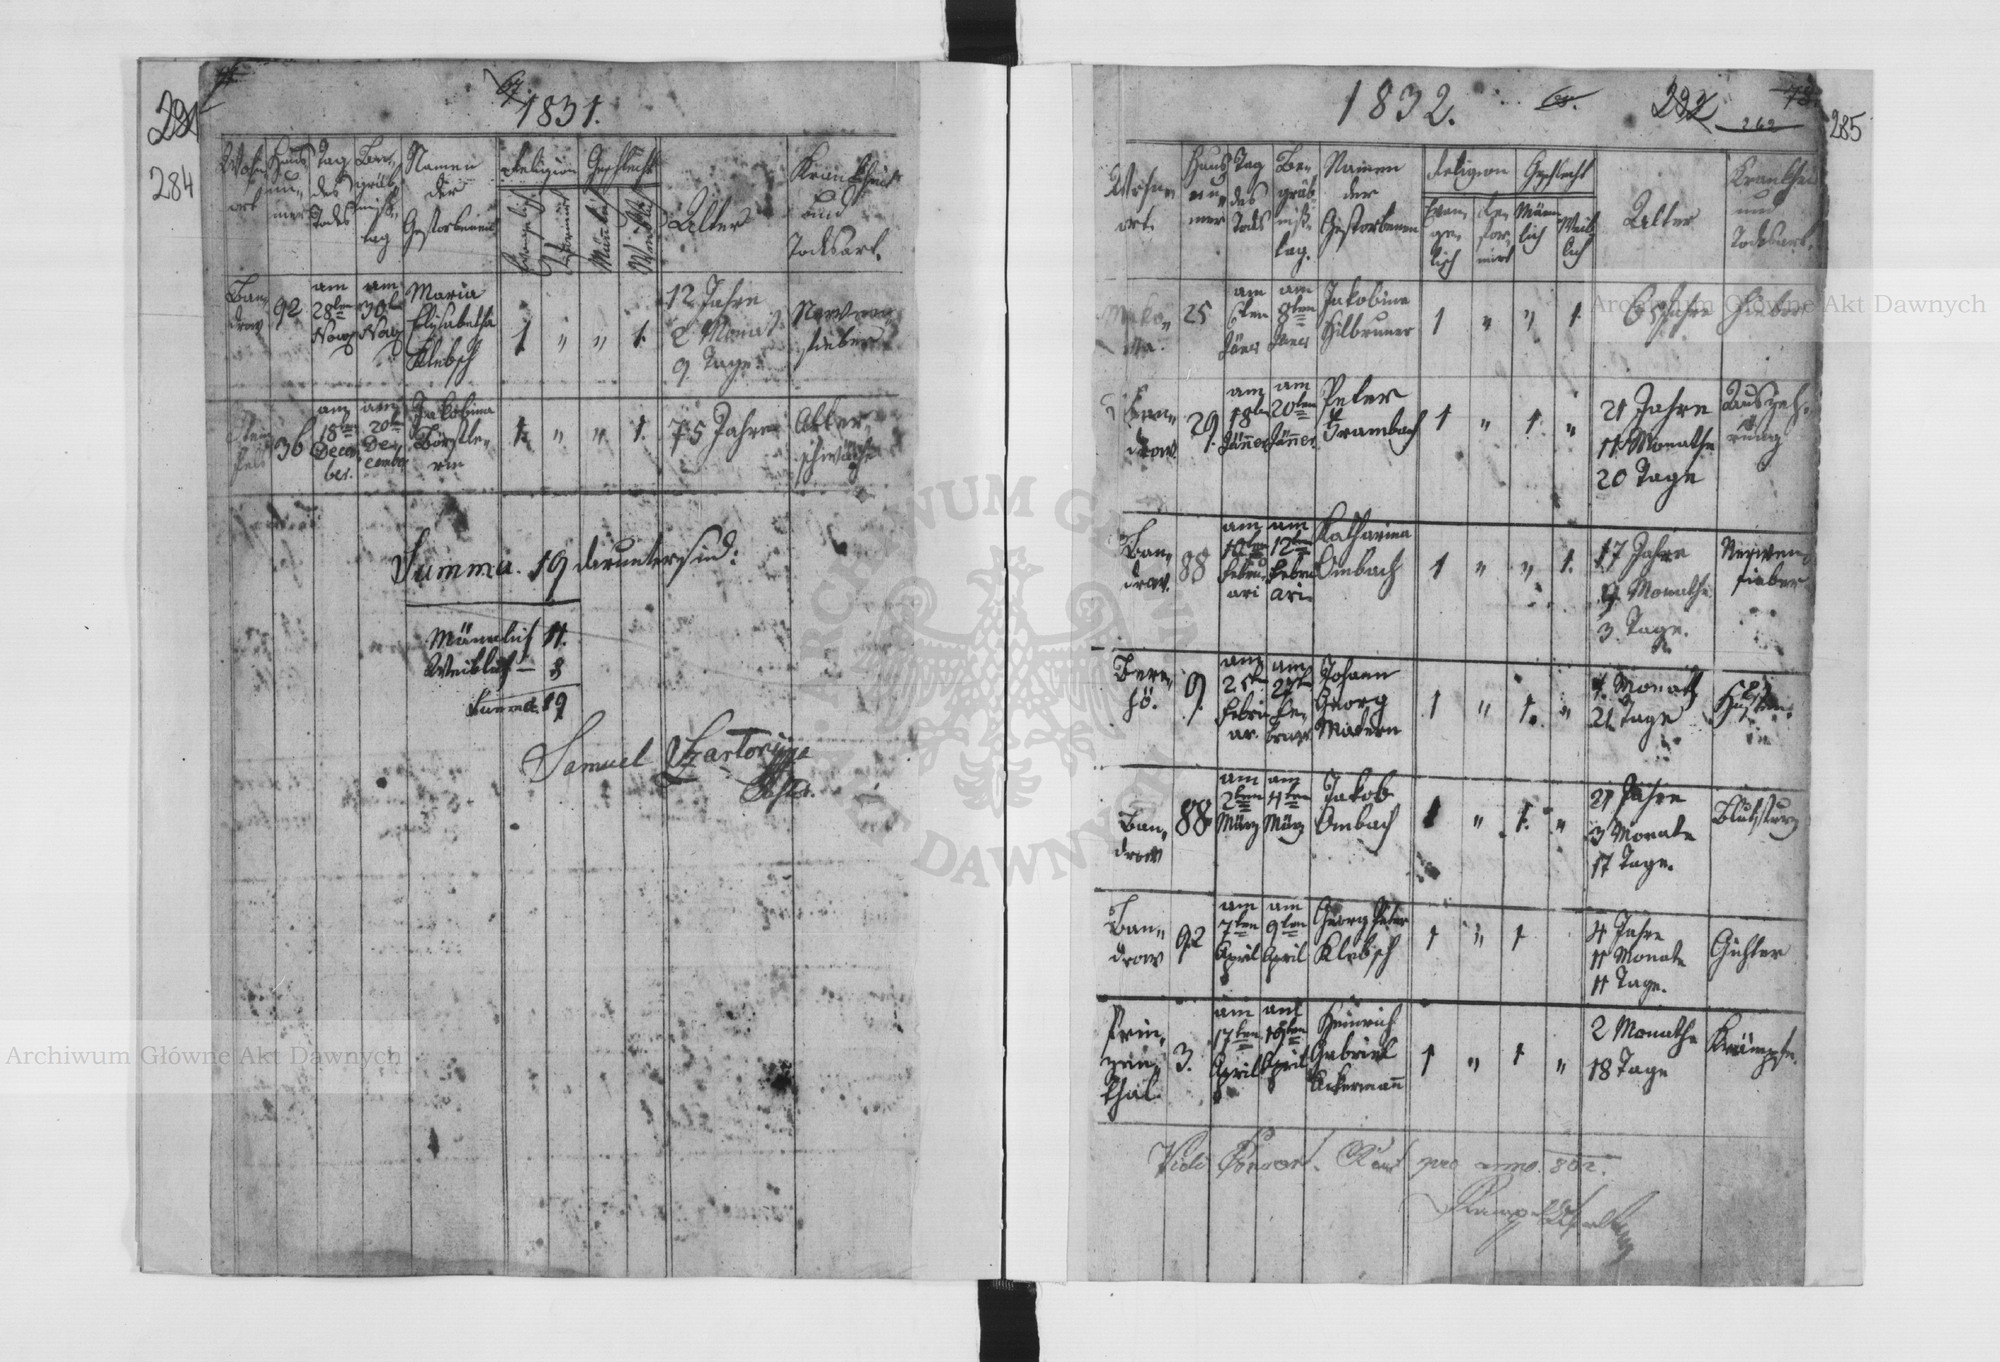 291
284
1831.
Wohn
ort
Haus
nu
mer
Tag
des
Todes
Be
gräb
niß
tag
Namen
der
Gestorbenen
Religion
Evangelisch
Reformirt
Geschlecht
Männlich
Weiblich
Alter
Krankheit
und
Todesart.
Ban„
drow
92
am
28ten
Nov
am
30ten
Nov
Maria
Elisabetha
Klebsch
1 „ „ 1.
12 Jahre
2 Monat
9 Tage
Nerven
fieber
Stein
fels
36
am
18ten
Decem
ber.
am
20ten
De
cember
Jakobina
Börstle„
rin
1. „ „ 1.
75 Jahre
Alter„
schwäche
Summa. 19 darunter sind:
Männlich 11.
Weiblich — 8
Summa 19
Samuel
1832.
68.
292
78.
262
285
Wohn„
ort.
Haus
nu„
mer
Tag
des
Tods
Be„
gräb„
niß„
tag.
Namen
der
Gestorbenen
Religion
Evan„
ge„
lisch
Re„
for„
mirt
Geschlecht
Männ„
lich
Weib
lich
Alter
Krankheit
und
Todesart.
25
am
6ten
Jäner
am
8ten
Jäner
Jakobina
Hilbruner
1 „ „ 1.
Jahre
Fieber
Ban„
drow
29.
am
18ten
Jänner
am
20ten
Jänner
Peter
Brambach
1 „ 1. „
21 Jahre
11 Monathe
20 Tage
Auszeh„
rung
Ban„
drow.
88
am
10ten
Febru„
ari
am
12ten
Febru
ari„
Katharina
Ombach
1 „ „ 1.
17 Jahre
Monathe
3 Tage.
Nerwen„
fieber
Bere„
hö.
9.
am
25ten
Febru
ar.
am
27ten
Fe„
bruar
Johann
Georg
Matern
1 „ 1. „
1. Monath
21 Tage
Husten.
Ban„
drow
88
am
2ten
März
am
4ten
März
Jakob
Ombach
1 „ 1. „
21 Jahre
3 Monate
17 Tage.
Blutsturz
Ban„
drow
92
am
7ten
April
am
9ten
April
Georg Peter
Klebsch
1 „ 1
4 Jahre
11 Monate
11 Tage.
Gichter
Prin„
zen„
thal.
3.
am
17ten
April
am
19ten
April
Heinrich
Gabriel
Ackermann
1 „ 1 „
2 Monathe
18 Tage
Krämpfe.
Vidi pro anno 832.
Archiwum Główne Akt Dawnych
Archiwum Główne Akt Dawnych
ARCHIWUM GŁÓWNE AKT DAWNYCH